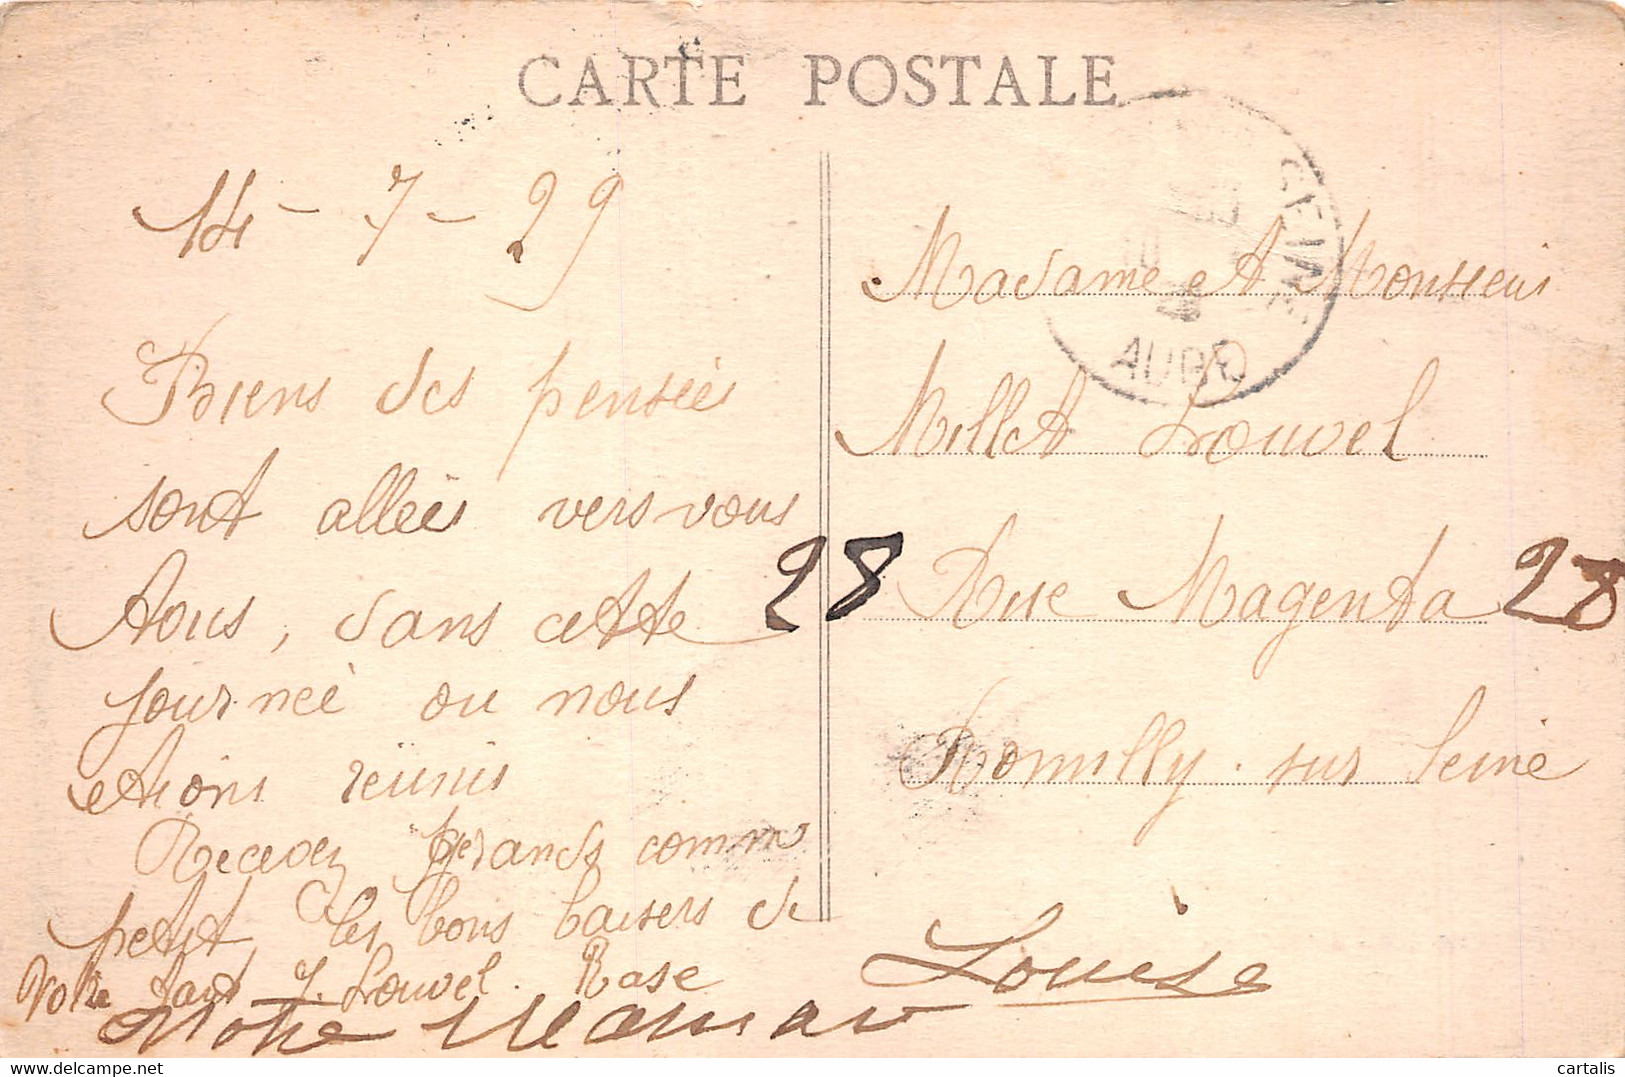 CARTE POSTALE
14 - 7 - 29
Biens des pensées
sont allées vers vous
tous, dans cette
journée ou nous
etions réunis
Recevez grands comm
petit, les bons baisers de
Votre J. Louvel. Rose
Notre Maman
Louise
Madame et Monsieur
Millet Louvel
28 Rue Magenta 28
Romilly. sur Seine
SEINE
AUBE
cartalis
delcampe.net